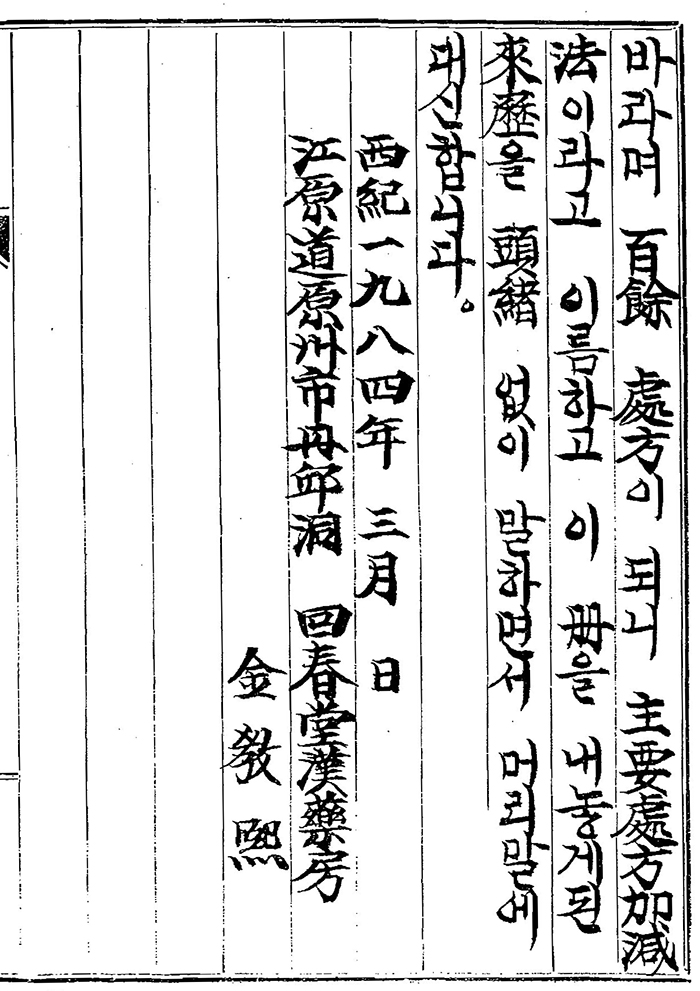 바라며 百餘 處方이 되니 主要處方加減
法이라고 이름하고 이 册을 내놓게된
來歷을 頭緖 없이 말하면서 머리말에
대신합니다。
西紀一九八四年 三月 日
江原道原州市丹邱洞 回春堂漢藥房
金敎熙